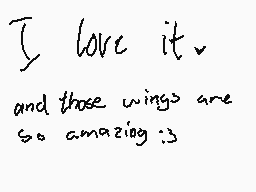 I love it.
and those wings are
so amazing :3